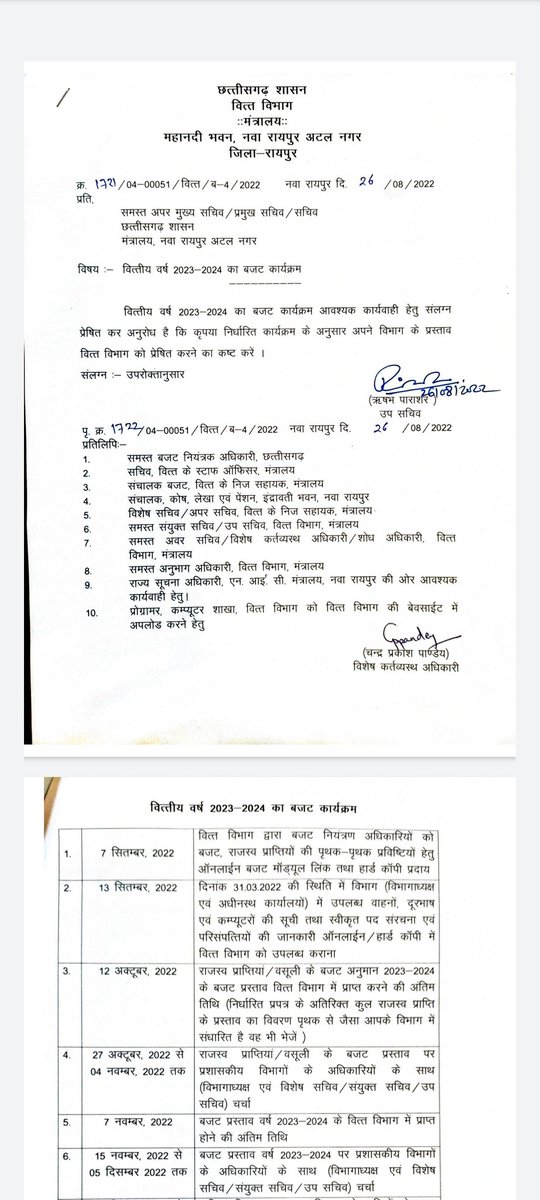 छत्तीसगढ़ शासन
वित्त विभाग
::मंत्रालय::
महानदी भवन, नवा रायपुर अटल नगर
जिला–रायपुर
क्र. 1721/04-00051/वित्त/ब-4/2022 नवा रायपुर दि. 26 /08/2022
प्रति,
समस्त अपर मुख्य सचिव/प्रमुख सचिव/सचिव
छत्तीसगढ़ शासन
मंत्रालय, नवा रायपुर अटल नगर
विषय :– वित्तीय वर्ष 2023-2024 का बजट कार्यक्रम
----------
वित्तीय वर्ष 2023-2024 का बजट कार्यक्रम आवश्यक कार्यवाही हेतु संलग्न
प्रेषित कर अनुरोध है कि कृपया निर्धारित कार्यक्रम के अनुसार अपने विभाग के प्रस्ताव
वित्त विभाग को प्रेषित करने का कष्ट करें ।
संलग्न :– उपरोक्तानुसार
26/08/2022
(ऋषभ पाराशर)
उप सचिव
पृ. क्र. 1722/04-00051/वित्त/ब-4/2022 नवा रायपुर दि. 26 /08/2022
प्रतिलिपि:–
1. समस्त बजट नियंत्रक अधिकारी, छत्तीसगढ़
2. सचिव, वित्त के स्टाफ ऑफिसर, मंत्रालय
3. संचालक बजट, वित्त के निज सहायक, मंत्रालय
4. संचालक, कोष, लेखा एवं पेंशन, इंद्रावती भवन, नवा रायपुर
5. विशेष सचिव/अपर सचिव, वित्त के निज सहायक, मंत्रालय
6. समस्त संयुक्त सचिव/उप सचिव, वित्त विभाग, मंत्रालय
7. समस्त अवर सचिव/विशेष कर्तव्यस्थ अधिकारी/शोध अधिकारी, वित्त
विभाग, मंत्रालय
8. समस्त अनुभाग अधिकारी, वित्त विभाग, मंत्रालय
9. राज्य सूचना अधिकारी, एन. आई. सी. मंत्रालय, नवा रायपुर की ओर आवश्यक
कार्यवाही हेतु।
10. प्रोग्रामर, कम्प्यूटर शाखा, वित्त विभाग को वित्त विभाग की बेवसाईट में
अपलोड करने हेतु
Cppandey
(चन्द्र प्रकाश पाण्डेय)
विशेष कर्तव्यस्थ अधिकारी
वित्तीय वर्ष 2023-2024 का बजट कार्यक्रम
1. 7 सितम्बर, 2022 वित्त विभाग द्वारा बजट नियंत्रण अधिकारियों को
बजट, राजस्व प्राप्तियों की पृथक-पृथक प्रविष्टियों हेतु
ऑनलाईन बजट मॉड्यूल लिंक तथा हार्ड कॉपी प्रदाय
2. 13 सितम्बर, 2022 दिनांक 31.03.2022 की स्थिति में विभाग (विभागाध्यक्ष
एवं अधीनस्थ कार्यालयों) में उपलब्ध वाहनों, दूरभाष
एवं कम्प्यूटरों की सूची तथा स्वीकृत पद संरचना एवं
परिसंपत्तियों की जानकारी ऑनलाईन/हार्ड कॉपी में
वित्त विभाग को उपलब्ध कराना
3. 12 अक्टूबर, 2022 राजस्व प्राप्तियां/वसूली के बजट अनुमान 2023-2024
के बजट प्रस्ताव वित्त विभाग में प्राप्त करने की अंतिम
तिथि (निर्धारित प्रपत्र के अतिरिक्त कुल राजस्व प्राप्ति
के प्रस्ताव का विवरण पृथक से जैसा आपके विभाग में
संधारित है वह भी भेजें )
4. 27 अक्टूबर, 2022 से राजस्व प्राप्तियां/वसूली के बजट प्रस्ताव पर
04 नवम्बर, 2022 तक प्रशासकीय विभागों के अधिकारियों के साथ
(विभागाध्यक्ष एवं विशेष सचिव/संयुक्त सचिव/उप
सचिव) चर्चा
5. 7 नवम्बर, 2022 बजट प्रस्ताव वर्ष 2023-2024 के वित्त विभाग में प्राप्त
होने की अंतिम तिथि
6. 15 नवम्बर, 2022 से बजट प्रस्ताव वर्ष 2023-2024 पर प्रशासकीय विभागों
05 दिसम्बर 2022 तक के अधिकारियों के साथ (विभागाध्यक्ष एवं विशेष
सचिव/संयुक्त सचिव/उप सचिव) चर्चा